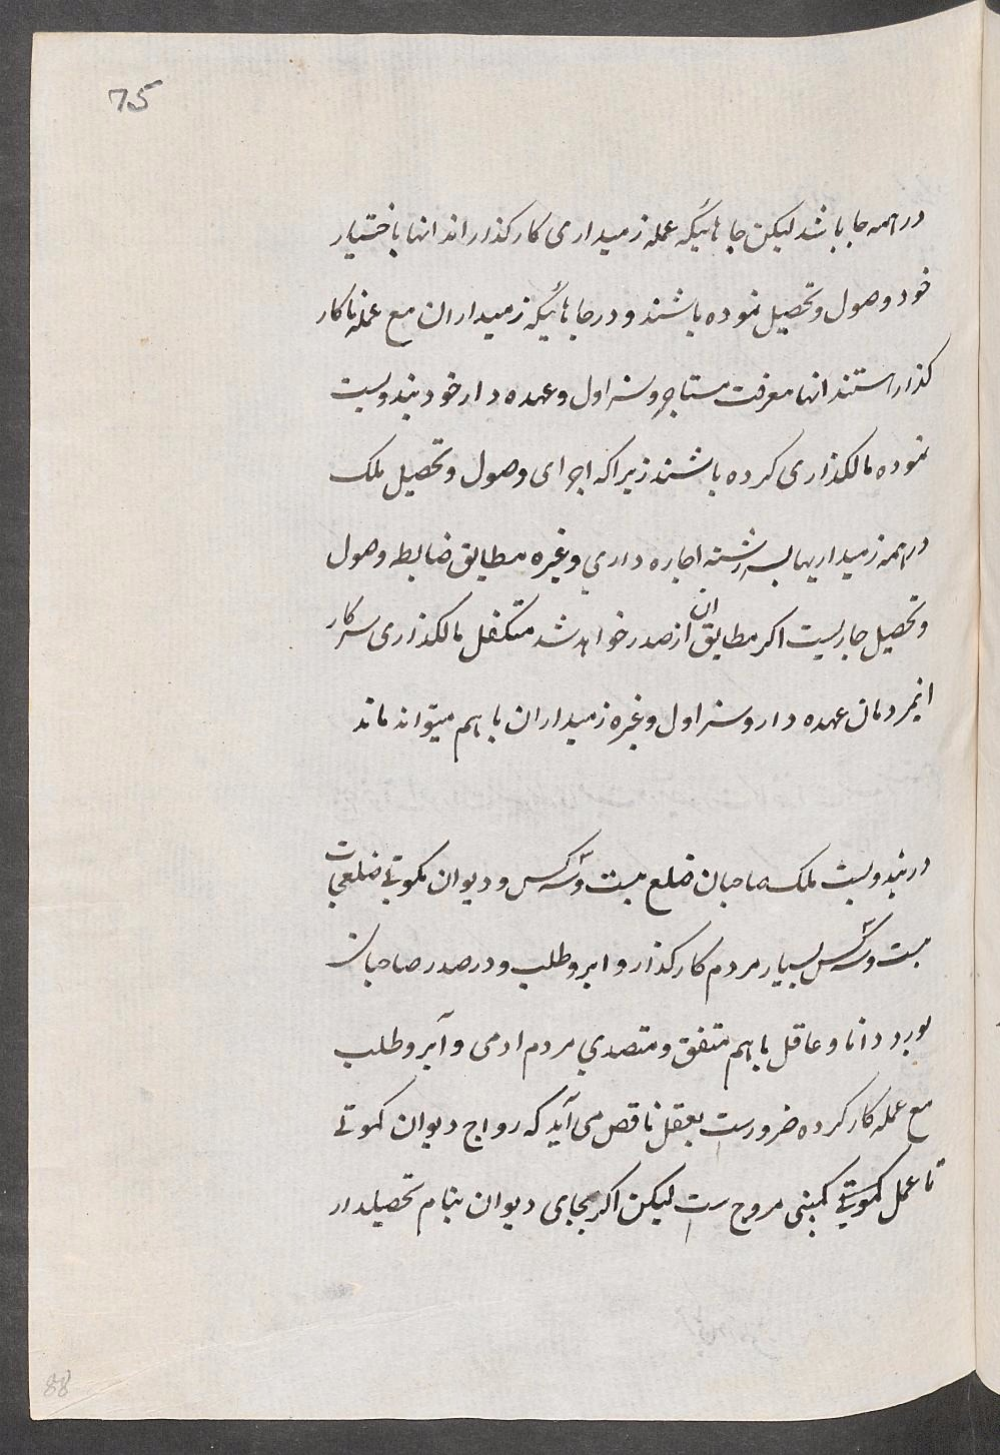 75
در همه جا باشد لیکن جا هائیکه عمله زمیداری کار کذار اند انها باختیار
خود وصول و تحصیل نموده باشند و در جا هائیکه زمیداران مع عمله نا کار
کذار استند انها معرفت مستاجر و سزاول و عهده دار خود بندوبست
نموده مالکذاری کرده باشند زیرا که اجرای وصول و تحصیل ملک
در همه زمیداریها بسر رشته اجاره داری و غیره مطابق ضابطه وصول
و تحصیل جاریست اکر مطابق ان از صدر خواهد شد متکفل مالکذاری سرکار
اینمردمان عهده دار و سزاول و غیره زمیداران باهم میتواند ماند
در بندوبست ملک صاحبان ضلع بیست و سه کس و دیوان کموتی ضلعجات
بیست و سه کس بسیار مردم کار کذار و ابرو طلب و در صدر صاحبان
بورد دانا و عاقل باهم متفق و متصدی مردم ادمی و آبرو طلب
مع عمله کار کرده ضرورست بعقل ناقص می آید که رواج دیوان کموتی
تا عمل کموتی کمپنی مروج ست لیکن اکر بجای دیوان بنام تحصیلدار
88